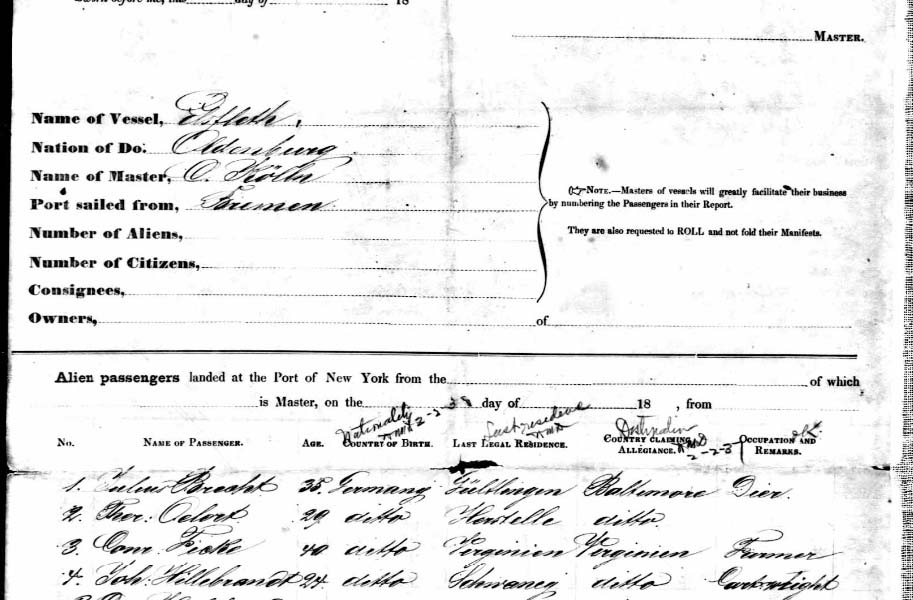 Sworn before me, this day of 18
MASTER.
Name of Vessel, Elsfleth.
Nation of Do: Oldenburg
Name of Master, O. Köhn
Port sailed from, Bremen
Number of Aliens,
Number of Citizens,
Consignees,
Owners, of
NOTE.—Masters of vessels will greatly facilitate their business
by numbering the Passengers in their Report.
They are also requested to ROLL and not fold their Manifests.
Alien passengers landed at the Port of New York from the of which
is Master, on the day of 18 , from
Nationality Last residence Destination ok.
No. NAME OF PASSENGER. AGE. COUNTRY OF BIRTH. LAST LEGAL RESIDENCE. COUNTRY CLAIMING ALLEGIANCE. OCCUPATION AND REMARKS.
1. Julius Brecht 35 Germany Gültlingen Baltimore Dier.
2. Ther: 29 ditto Herstelle ditto
3. Conr. Ficke 40 ditto Virginien Virginien Farmer
4. Joh: Hillebrandt 24 ditto Schwaney ditto Cartwright